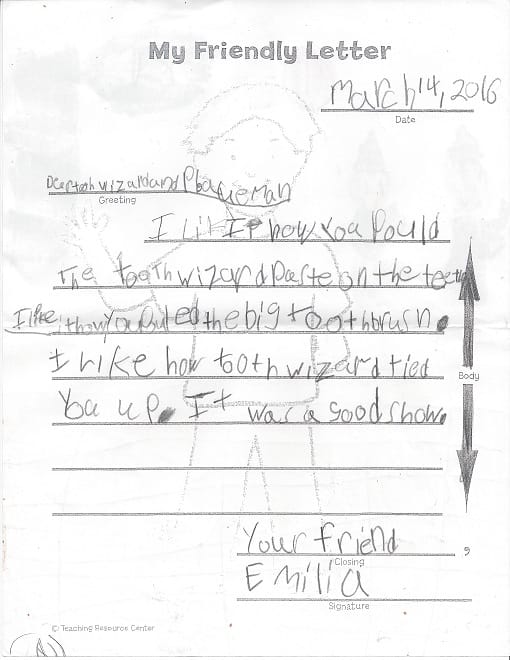 My Friendly Letter
March 14, 2016
Date
Dear tooth wizard and Plaqueman
Greeting
I lit It how you Pould
The tooth wizard Paste on the teeth
I like it how you Puted the big toothbrush.
I like how tooth wizard tied
Body
You up. It was a good show.
Your friend ,
Closing
Emilia
Signature
© Teaching Resource Center